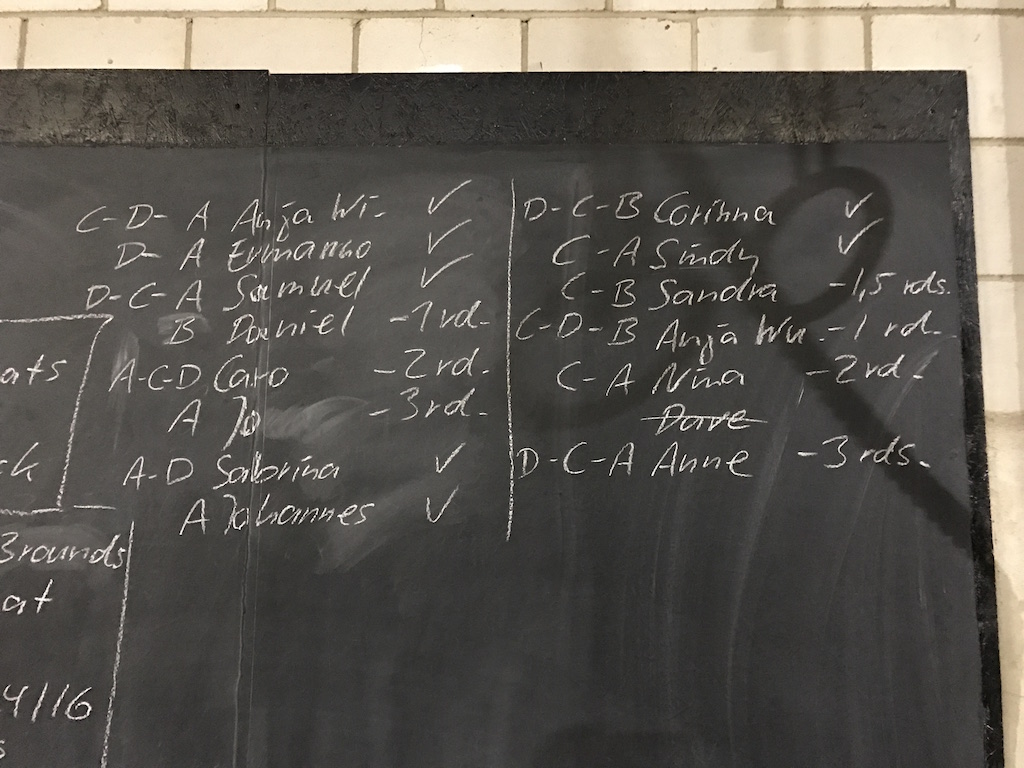 C-D-A Anja Wi. ✓
D-A Ermanno ✓
D-C-A Samuel ✓
B Daniel -1rd.
A-C-D Caro -2rd.
A Jo -3rd.
A-D Sabrina ✓
A Johannes ✓
D-C-B Corinna ✓
C-A Sindy ✓
C-B Sandra -1,5 rds.
C-D-B Anja Wu. -1 rd.
C-A Nina -2rd.
Dave
D-C-A Anne -3 rds.
ats
ck
3rounds
at
4/16
s